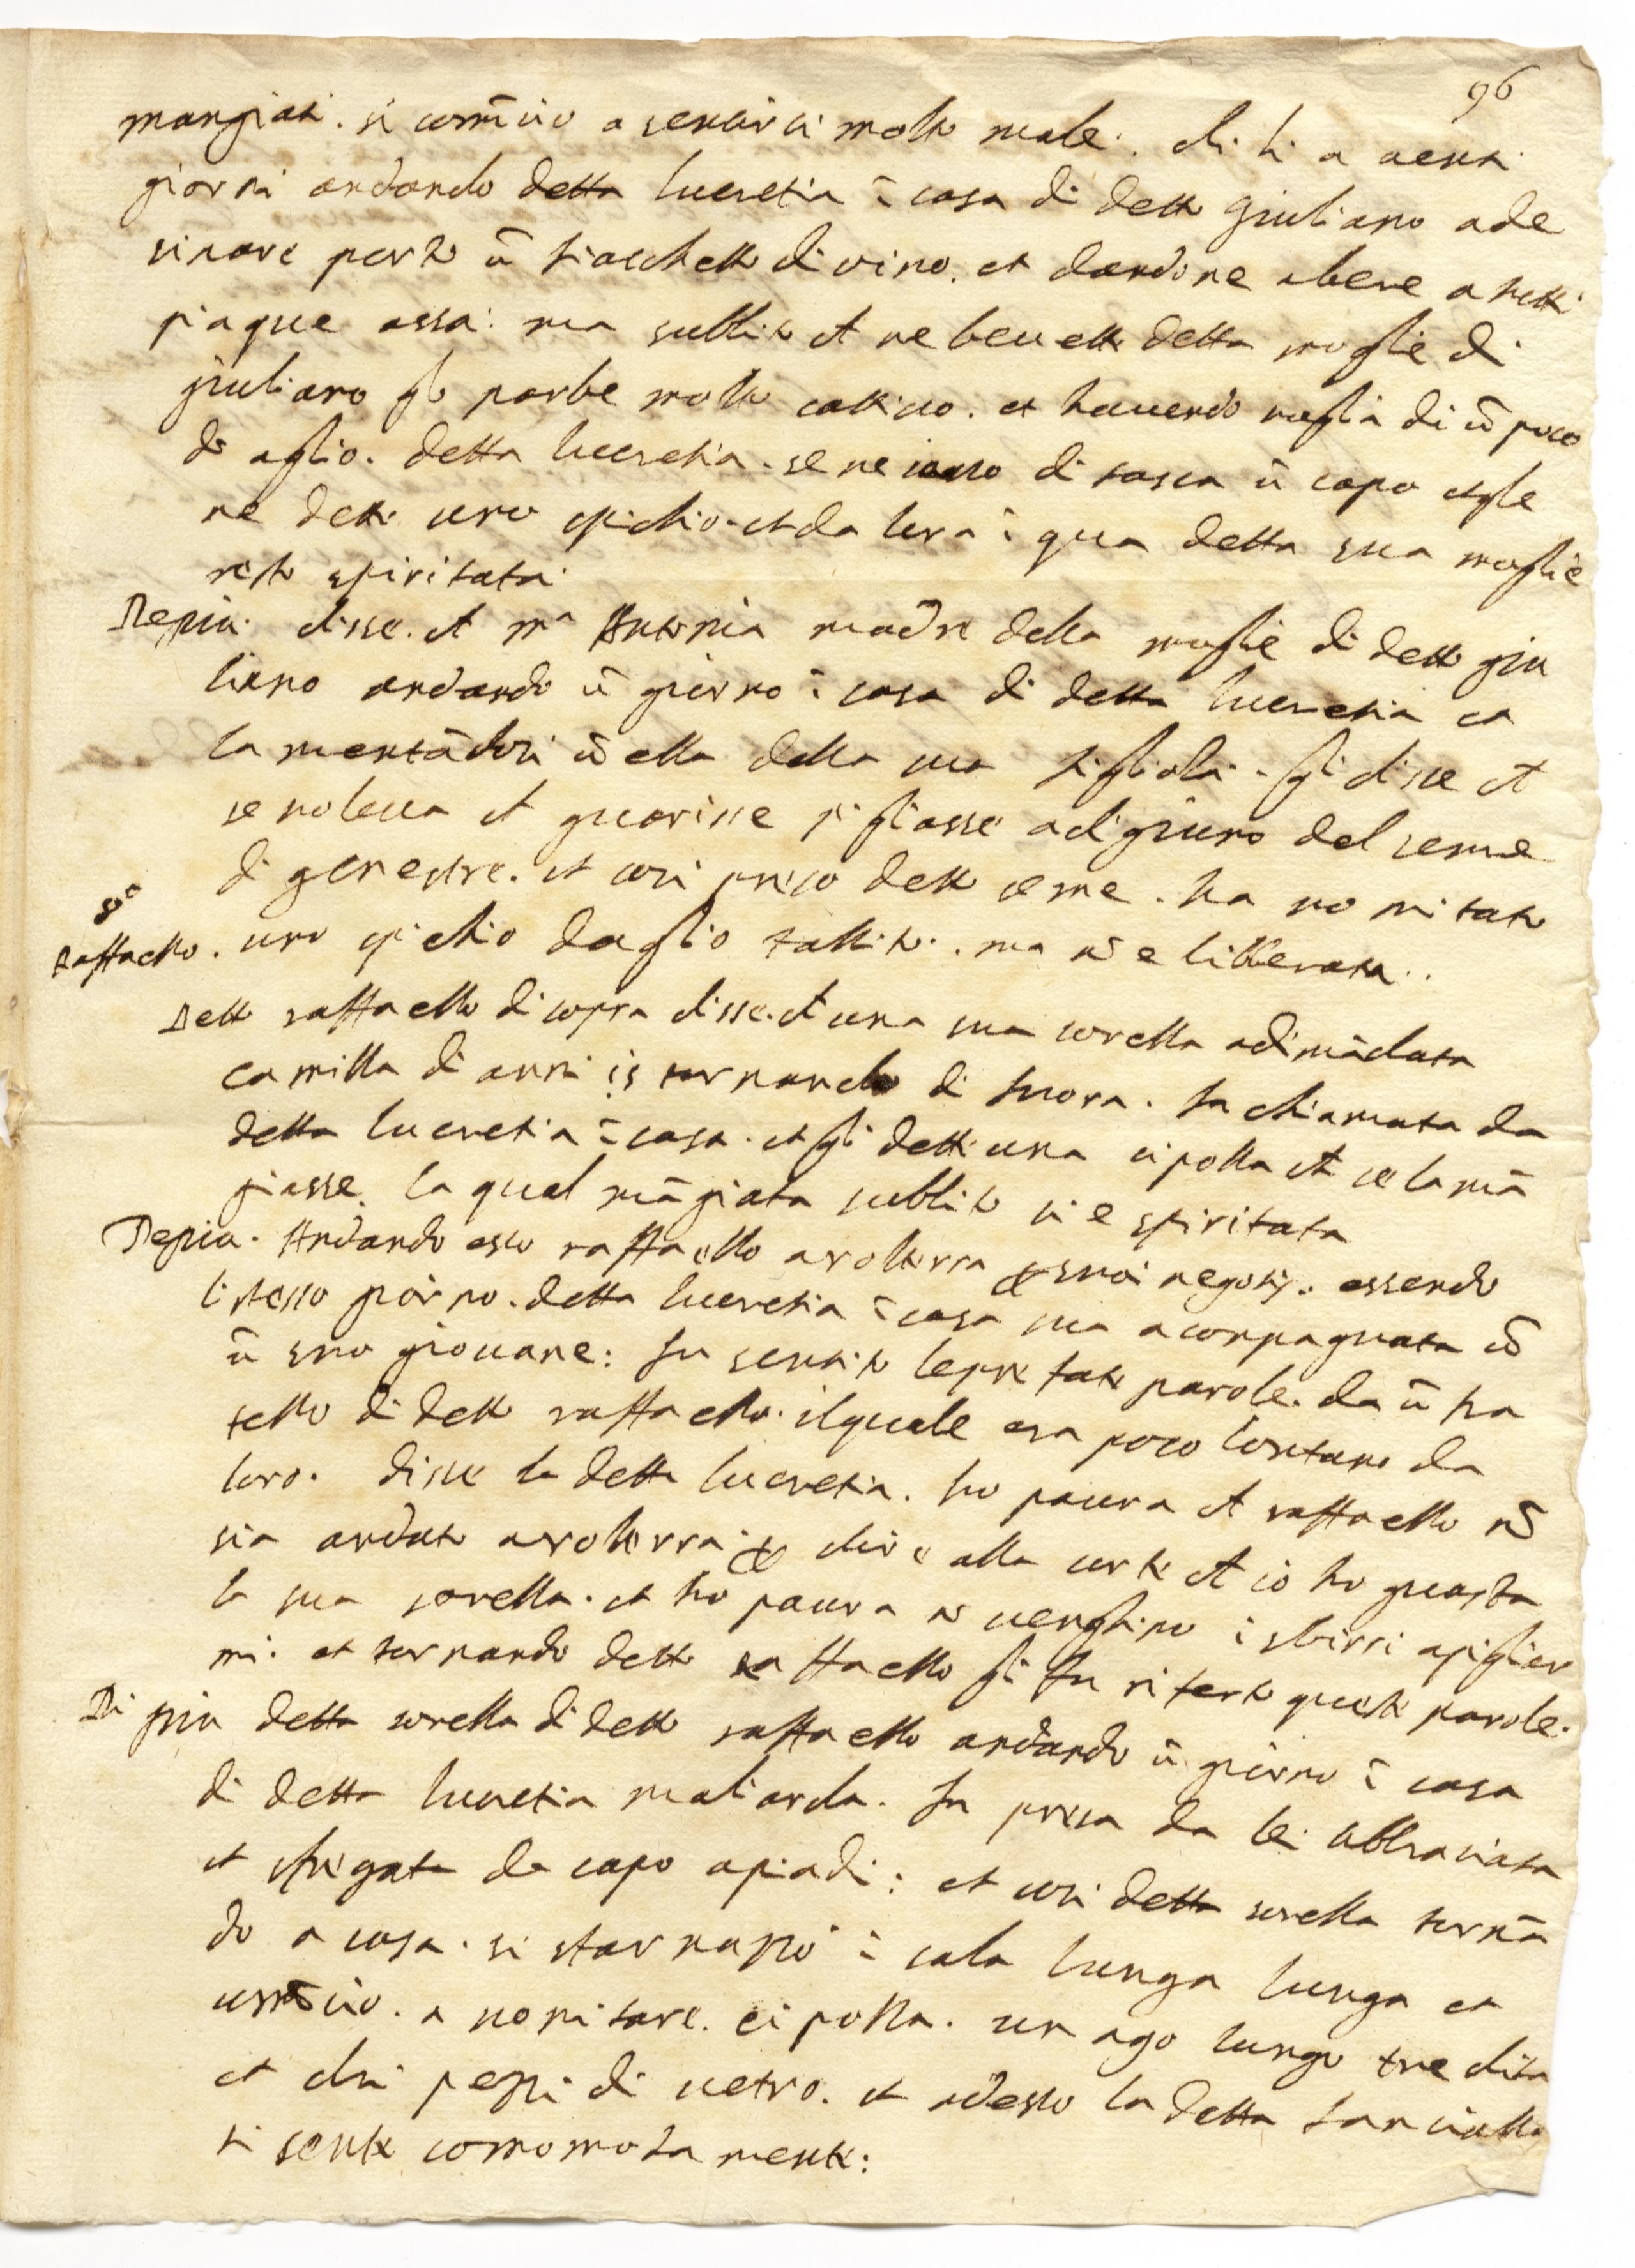 96
mangiati. si com̄icio a sentirsi molto male. di li a uenti
giorni andando detta lucretia ī casa di detto giuliano ade
sinare porto ū fiaschetto di vino. et dandone abere a tutti
piaque assai ma subbito che ne beuette detta moglie di
giuliano gli parbe molto cattiuo. et hauendo voglia di ū poco
di aglio. detta lucretia. se ne cauo di tasca ū capo et gle
ne dette uno spichio. et da lora ī qua detta sua moglie
resto spiritata.
Depiu. disse. che mᵃ Antonia madre della moglie di detto giu
liano andando ū giorno ī casa di detta lucretia et
lamentādosi cō ella della sua figliola. gli disse che
se voleua che guarisse pigliasse adigiuno del seme
di genestre. et cosi preso detto seme. ha vomitato
8°
Raffaello. uno spichio daglio fattito. ma nō e libberata..
Detto raffaello di sopra disse. che una sua sorella adimādata
camilla di anni 15 tornando di fuora. fu chiamata da
detta lucretia ī casa. et gli dette una cipolla che se la mā
giasse. la qual māgiata subbito si e spiritata
Depiu. Andando esso raffaello a volterra p suoi negotij. essendo
listesso giorno. detta lucretia ī casa sua acompagnata cō
ū suo giouane: fu sentito lepre fate parole. da ū fra
tello di detto raffaello. ilquale era poco lontano da
loro. disse la detta lucretia. ho paura che raffaello nō
sia andato a volterra p dire alla corte che io ho guasta
la sua sorella. et ho paura nō uenghino i sbirri apigliar
mi. et tornando detto raffaello gli fu riferto queste parole.
Di piu detta sorella di detto raffaello andando ū giorno ī casa
di detta lucretia maliarda. fu presa da lei abbraciata
et fregata da capo apiadi: et cosi detta sorella tornā
do a casa. si starnazzò ī sala lunga lunga et
comīcio. a vomitare. cipolla. un ago lungo tre dita
et dui pezzi di uetro. et adesso la detta fanciulla
si sente comomodamente: